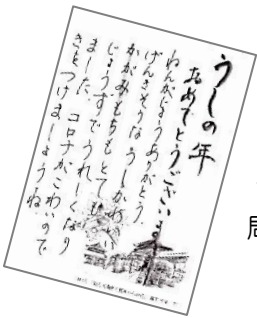 うしの年
おめでとうございます
ねんがじょうありがとう
げんきそうな うしかわいい
かがみもちもとても
じょうずでうれしくなり
ました。コロナがこわいので
きをつけましょうね
周